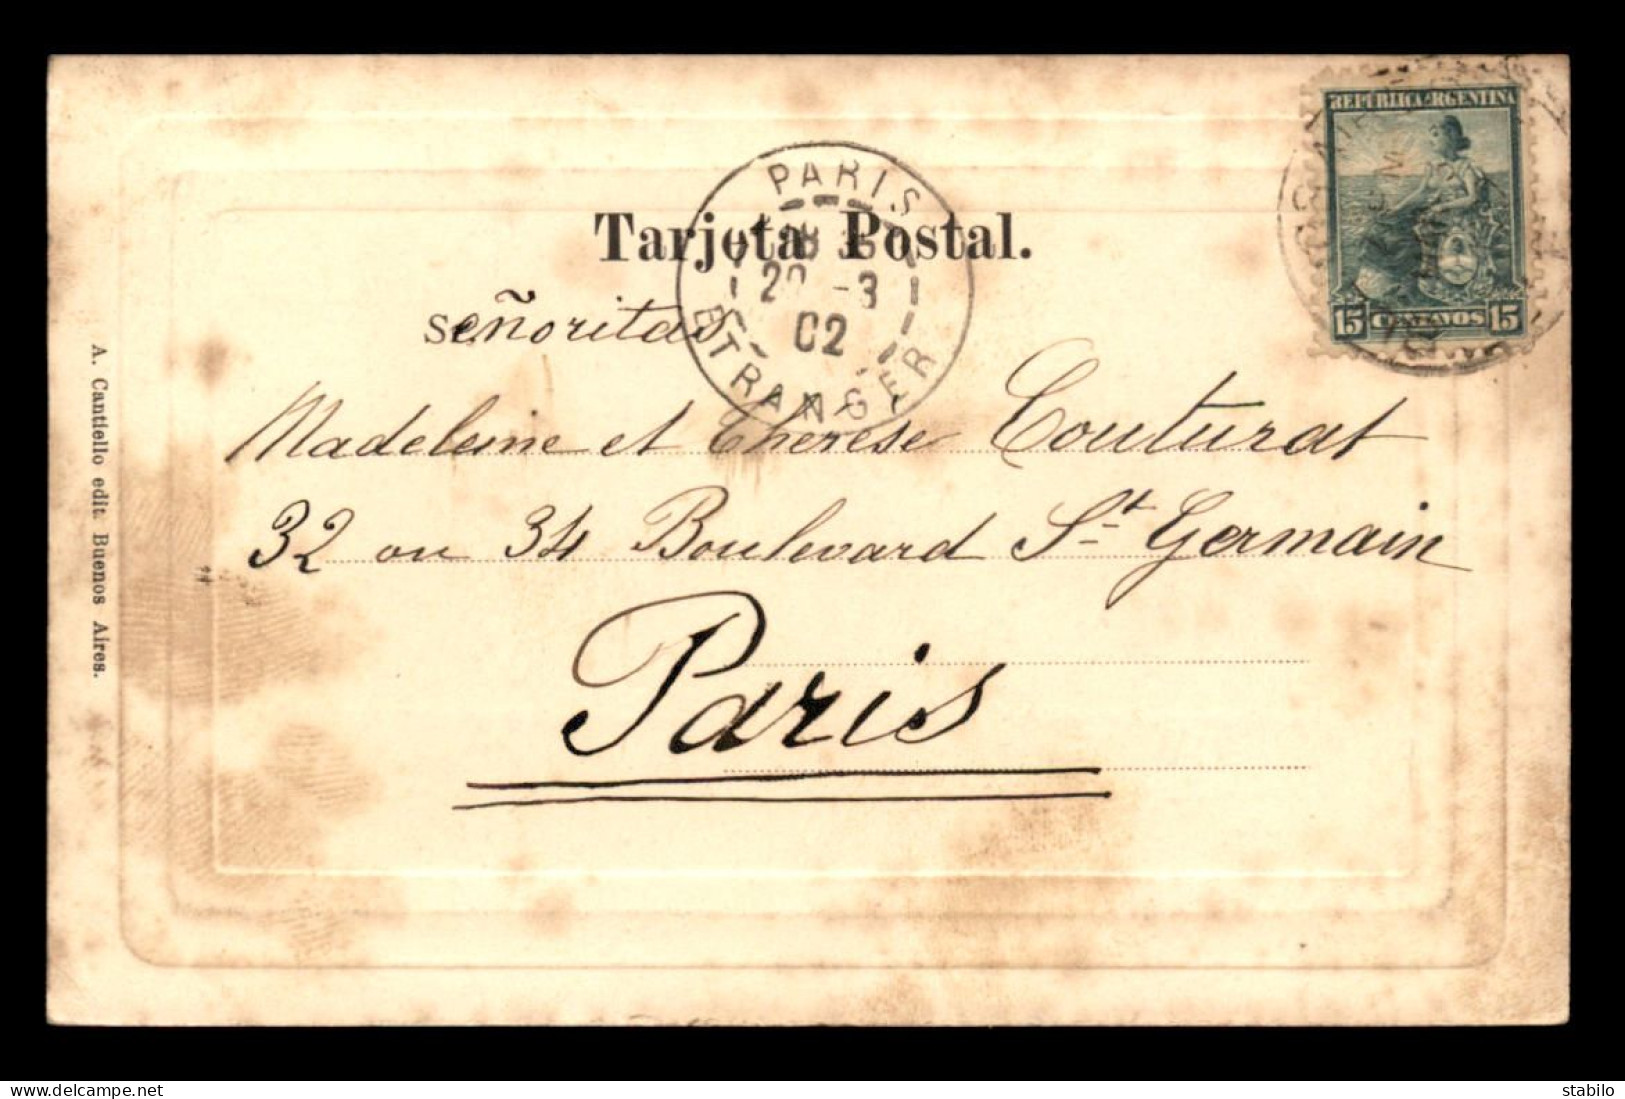 REPUBLICA ARGENTINA
15 CENTAVOS 15
PARIS
ETRANGER
-3
02
Tarjeta Postal.
señoritas
Madeleine et Therese Couturat
32 ou 34 Boulevard St Germain
Paris
A. Cantiello edit. Buenos Aires.
delcampe.net
stabilo